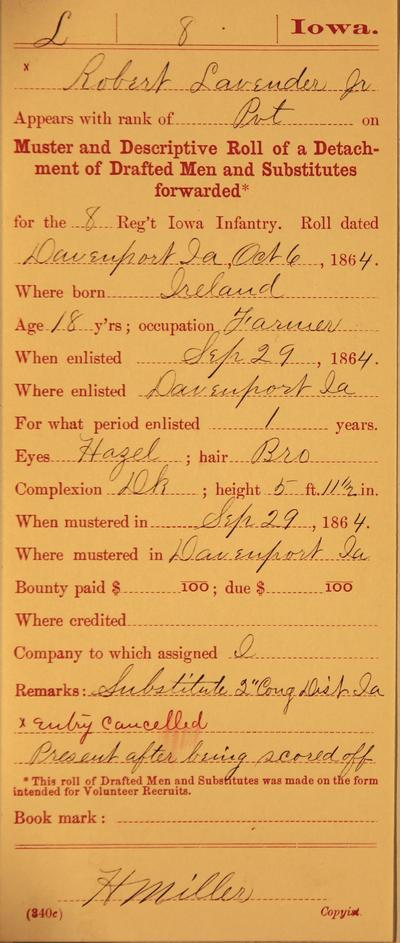 L | 8 | Iowa.
x
Robert Lavender Jr
Appears with rank of Pvt on
Muster and Descriptive Roll of a Detach-
ment of Drafted Men and Substitutes
forwarded*
for the 8 Reg't Iowa Infantry. Roll dated
Davenport Ia, Oct 6, 1864.
Where born Ireland
Age 18 y'rs; occupation Farmer
When enlisted Sep 29, 1864.
Where enlisted Davenport Ia
For what period enlisted 1 years.
Eyes Hazel; hair Bro
Complexion Dk; height 5 ft. 11 1/2 in.
When mustered in Sep 29, 1864.
Where mustered in Davenport Ia
Bounty paid $ 100; due $ 100
Where credited
Company to which assigned I
Remarks: Substitute 2" Cong Dist Ia
x Entry Cancelled
Present after being scored off
* This roll of Drafted Men and Substitutes was made on the form
intended for Volunteer Recruits.
Book mark:
H Miller
(340c) Copyist.